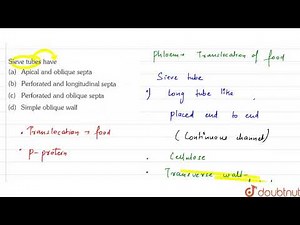 Sieve tubes have
(a) Apical and oblique septa
(b) Perforated and longitudinal septa
(c) Perforated and oblique septa
(d) Simple oblique wall
• Translocation → food
• P- protein
Phloem → Translocation of food
Sieve tube
•) Long tube like
placed end to end
(Continuous channel)
• Cellulose
• Transverse wall
doubtnut